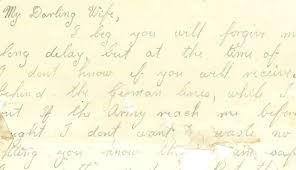 My Darling Wife,
I beg you will forgive m
long delay, but at the time of
I don't know if you will receive
behind the German lines, while I
out If the Army reach me befor
ight I don't want to waste no
tting you know that I am safe
But the